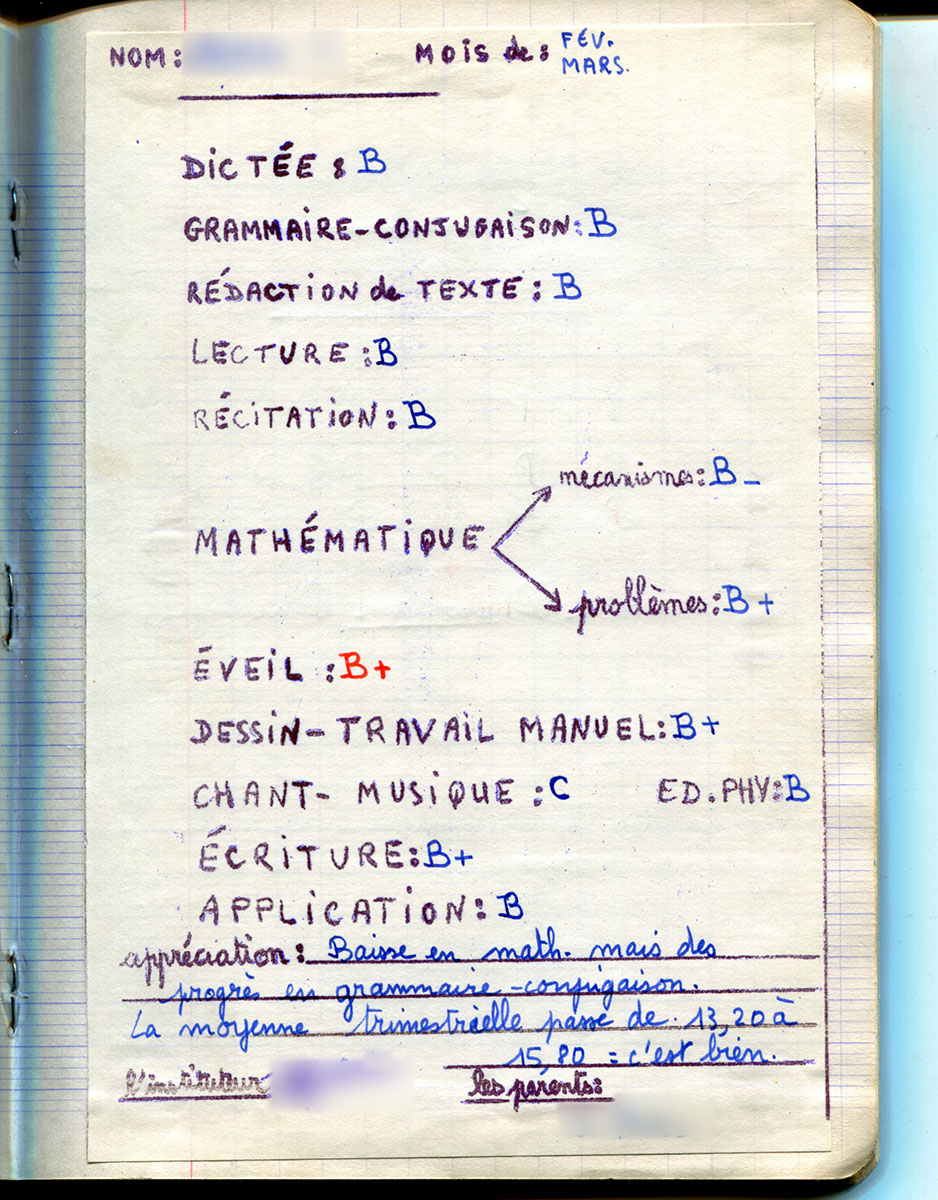 NOM: MOIS de: FÉV.
MARS.
DICTÉE : B
GRAMMAIRE-CONJUGAISON: B
RÉDACTION de TEXTE : B
LECTURE : B
RÉCITATION : B
mécanismes: B-
MATHÉMATIQUE
problèmes: B+
ÉVEIL : B+
DESSIN- TRAVAIL MANUEL: B+
CHANT- MUSIQUE : C ED. PHY: B
ÉCRITURE: B+
APPLICATION: B
appréciation: Baisse en math. mais des
progrès en grammaire-conjugaison.
La moyenne trimestrielle passe de 13,20 à
15,80 = c'est bien.
l'instituteur les parents: